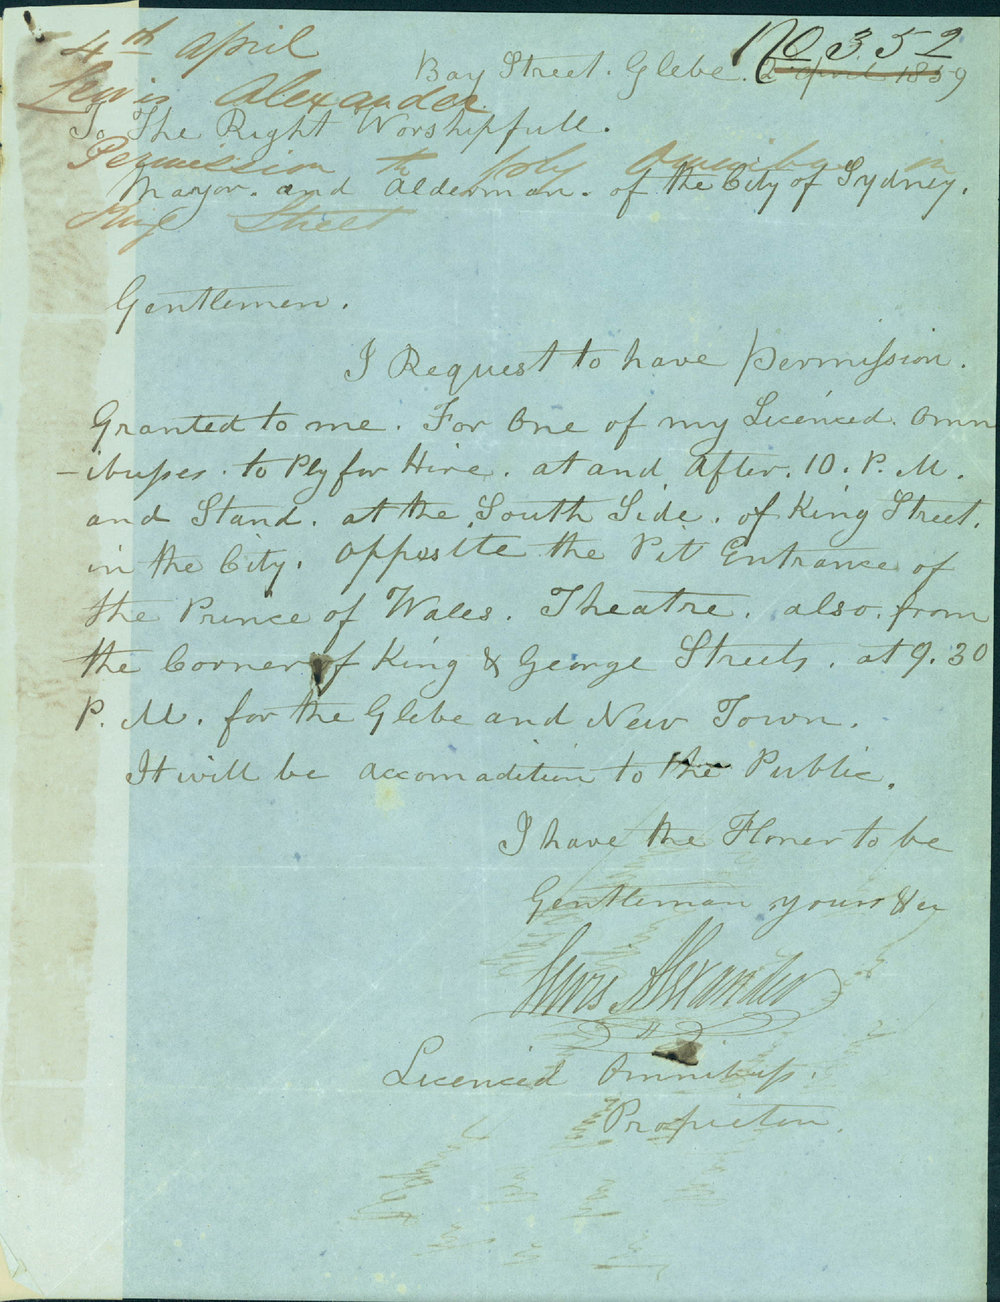 No 352
4th April
Bay Street. Glebe. 2 April 1859
Lewis Alexander
To The Right Worshipfull.
Permission to ply Omnibus in
Mayor. and Alderman. of the City of Sydney.
King Street
Gentlemen.
I Request to have permission.
Granted to me. For One of my Licenced. Omn
-ibusses. to Ply for Hire. at and After. 10. P. M.
and Stand. at the South Side. of King Street.
in the City. opposite the Pit Entrance of
the Prince of Wales. Theatre. also. from
the Corner of King & George Streets. at 9.30
P. M. for the Glebe and New Town.
It will be accomadition to the Public.
I have the Honer to be
Gentleman yours &c
Lewis Alexander
Licenced Omnibuss.
Propieton